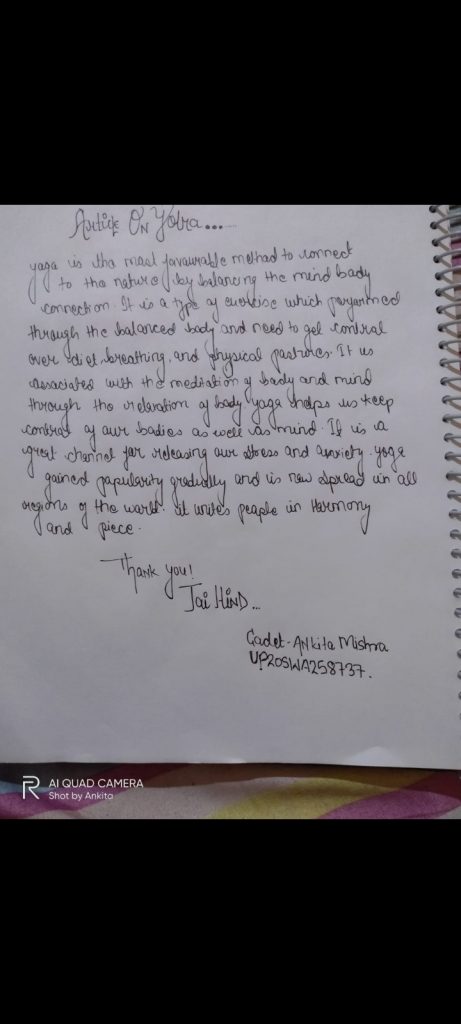 Article On Yoga.....
yoga is the most favourable method to connect
to the nature by balancing the mind body
connection. It is a type of exercise which performed
through the balanced body and need to get control
over diet, breathing, and physical postures. It is
associated with the mediation of body and mind
through the relaxation of body. yoga helps us keep
control of our bodies as well as mind. It is a
great channel for releasing our stress and anxiety. yoga
gained popularity gradually and is now spread in all
regions of the world. it unites people in Harmony
and piece.
Thank you!
Jai HIND...
Cadet- Ankita Mishra
UP20SWA258737.
AI QUAD CAMERA
Shot by Ankita